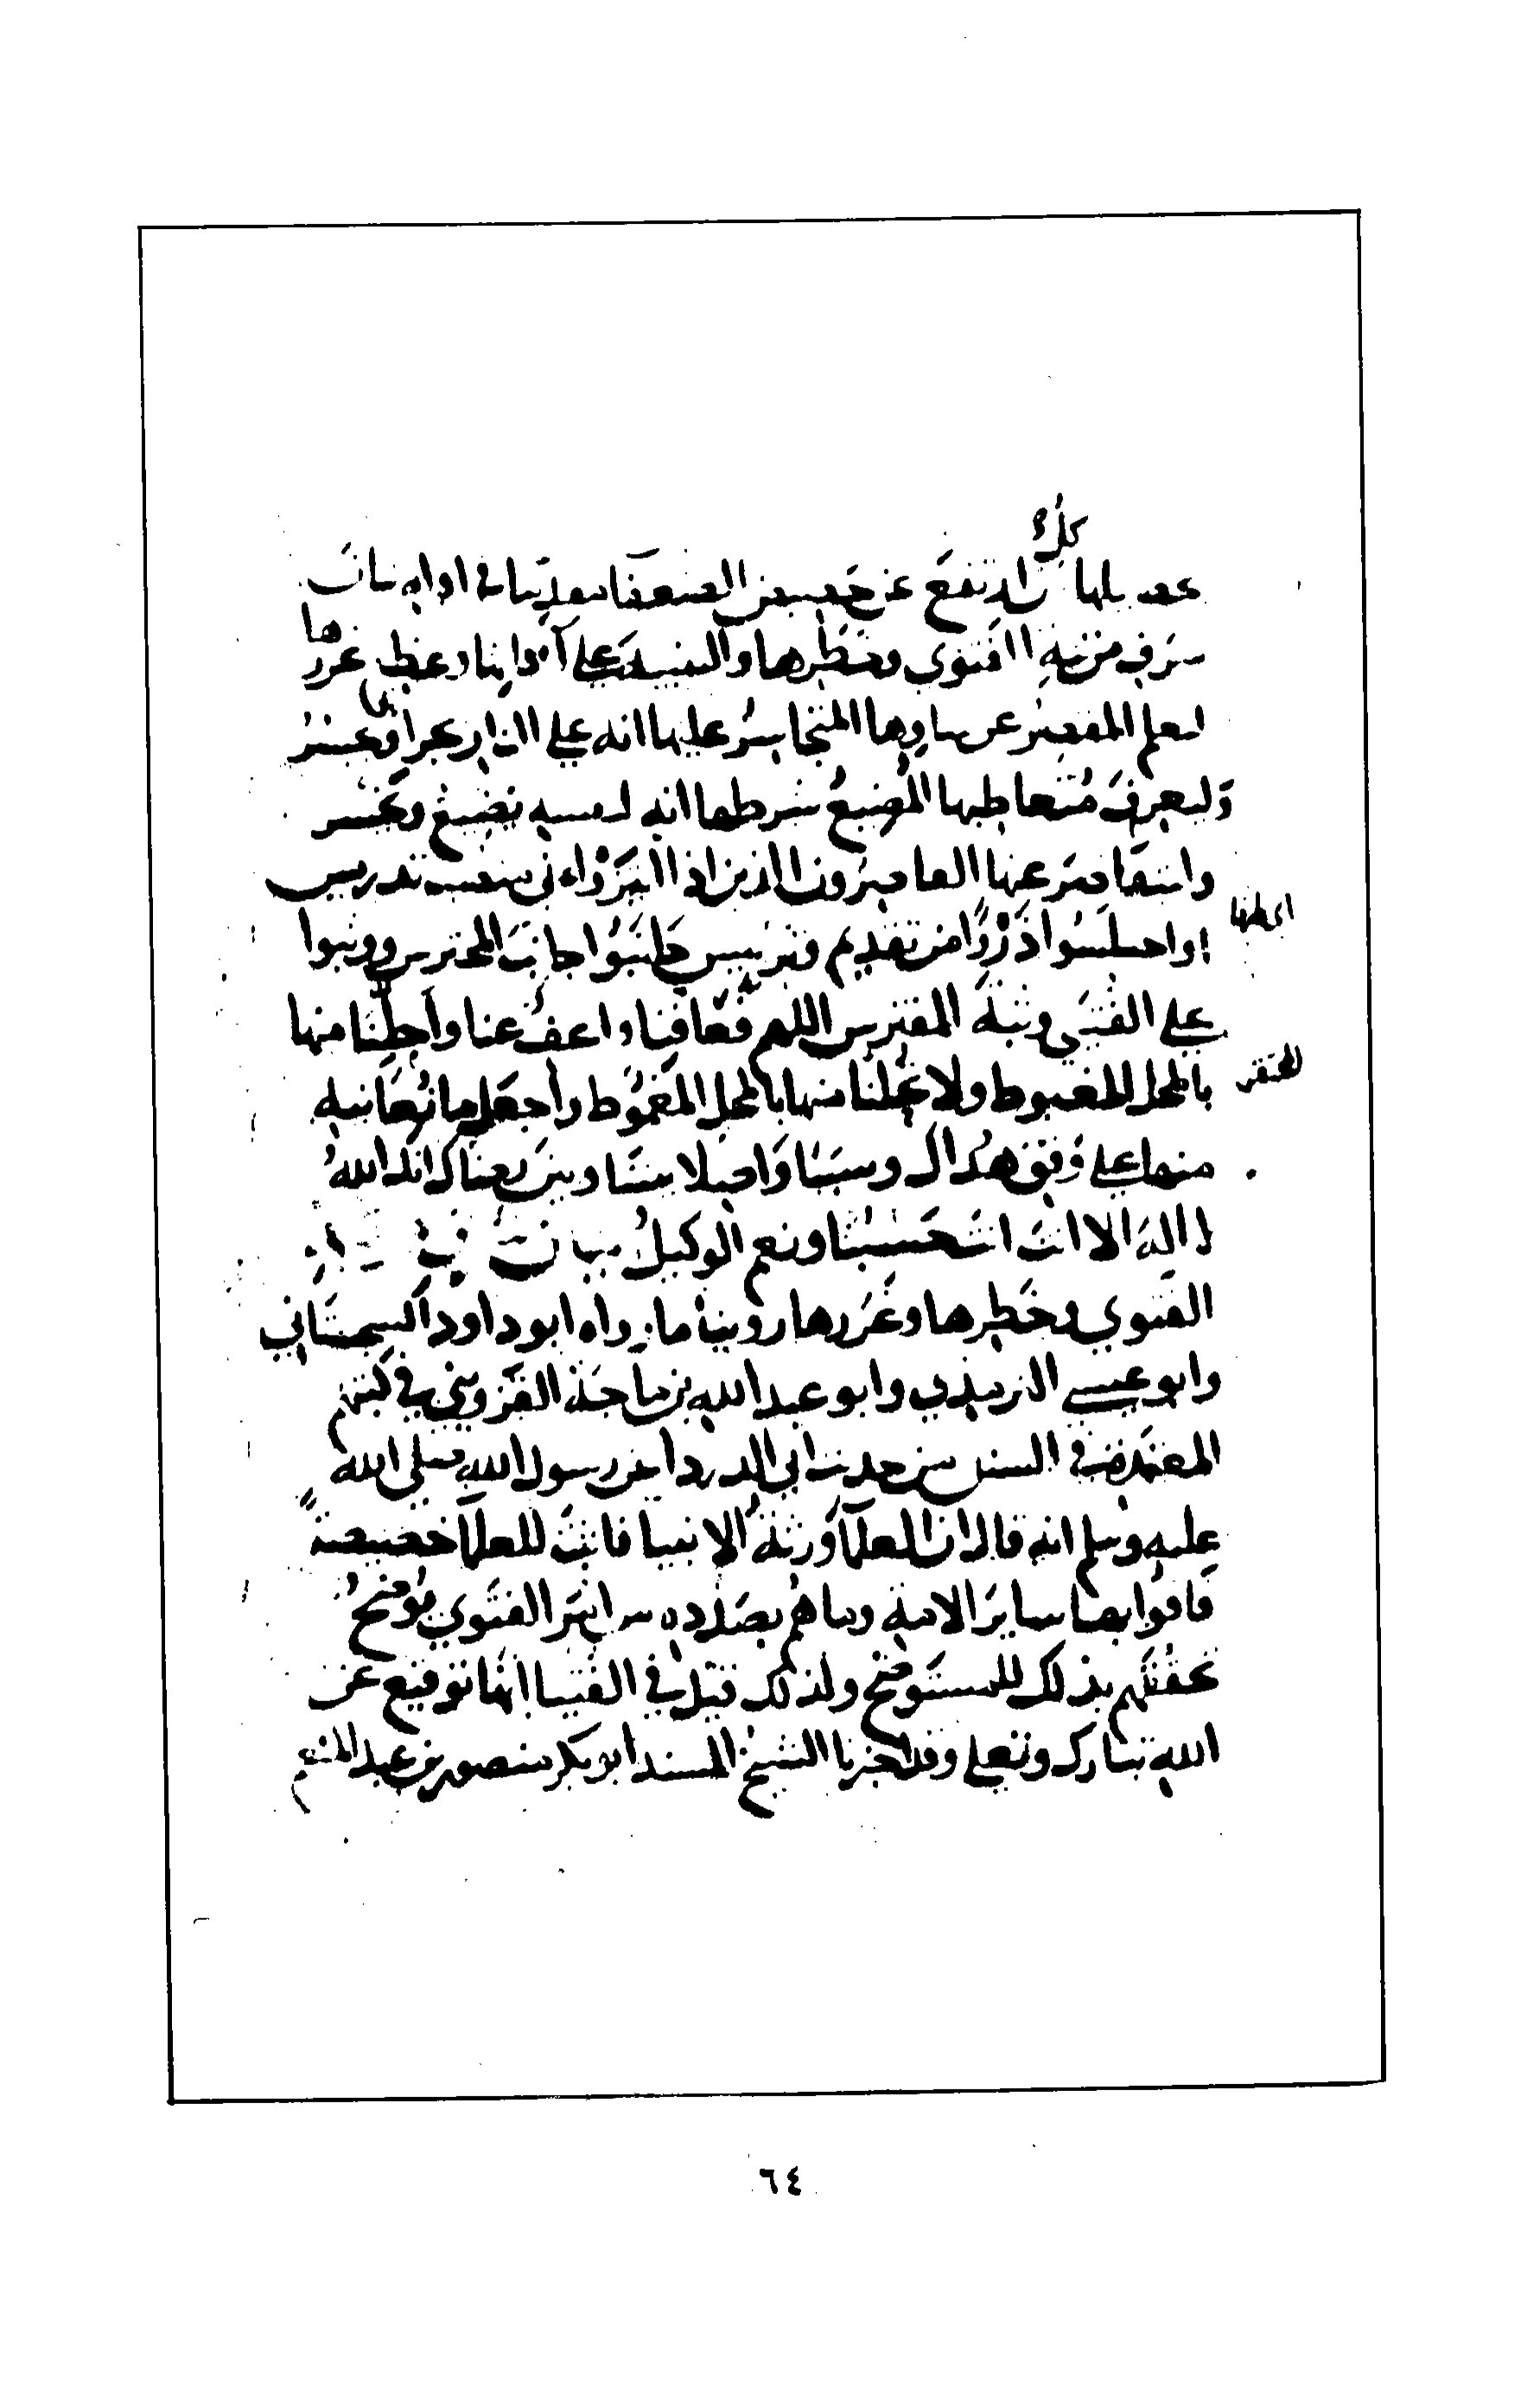 كل
بها ترتفع عن حضيض الضعفا مقدما في اوله بيان
شرف مرتبه الفتوى وخطرها والتنبيه على آدابها وعظم غررها
ليعلم المقصر عن شاوها المتجاسر عليها انه على النار يجرا ويجسر
وليعرف متعاطيها المضيع شرطها انه لنفسه يضيع ويخسر
وليتقاصر عنها القاصرون الذين اذا انتزوا على منصب تدريس
او اختلسوا ذروا من تقديم وترييس جانبوا جانب المحترس ووثبوا
اي اعطنا
على الفتيى وثبة المفترس اللهم فعافنا واعف عنا وأحلنا منها
بالمحل المغبوط ولا تحلنا منها بالمحل المغموط واجعل ما نعانيه
المحتقر
منها على وفق هداك وسببا واصلا بيننا وبين رضاك انك الله
لا اله الا انت انت حسبنا ونعم الوكيل بيان شرف
الفتوي وخطرها وغررها روينا ما رواه ابو داود السجستاني
وابو عيسى الترمذي وابو عبد الله بن ماجة القزويني في كتبهم
المعتمدة في السنن من حديث ابي الدردا عن رسول الله صلى الله
عليه وسلم انه قال ان العلمآ ورثة الانبيا فاثبت للعلمآ خصيصة
فاقوا بها ساير الامة وما هم بصدده من امر الفتوي يوضح
تحققهم بذلك للمستوضح ولذلك قيل في الفتيا انها توقيع عن
الله تبارك وتعلى وقد اخبرنا الشيخ المسند ابو بكر منصور بن عبد المنعم
٦٤